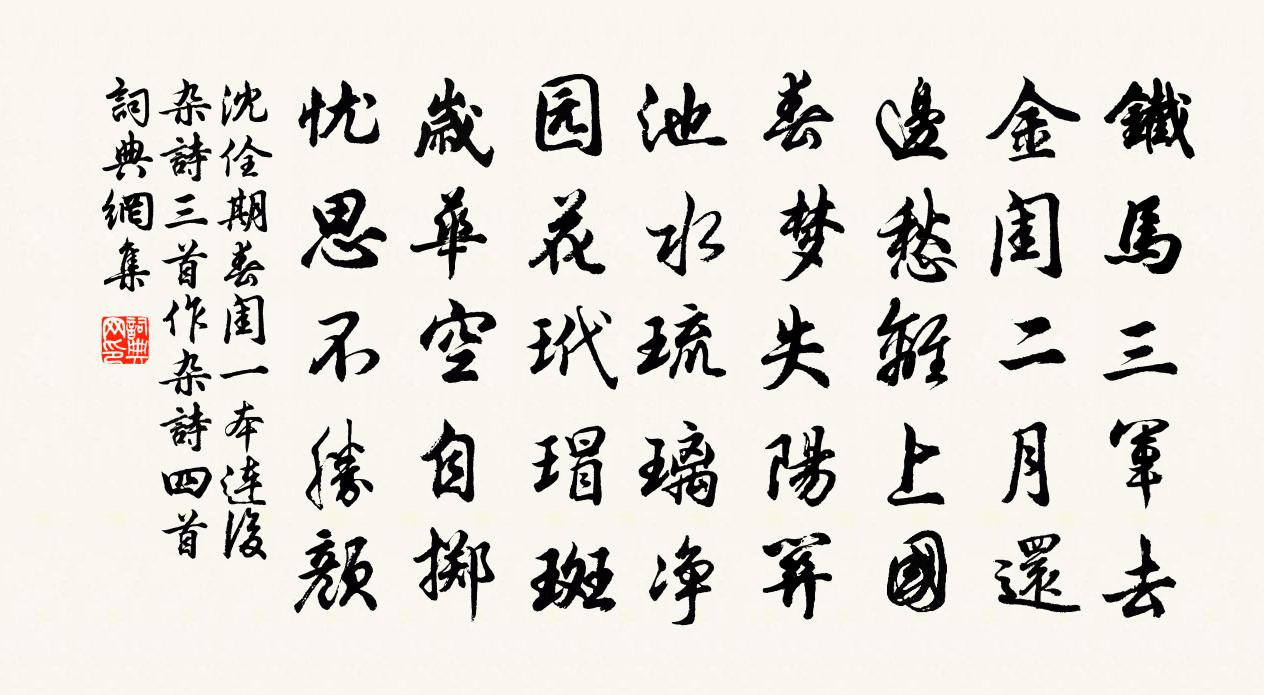 鐵馬三軍去
金閨二月還
邊愁離上國
春梦失陽關
池水琉璃净
园花玳瑁斑
歲華空自掷
忧思不勝顏
沈佺期春閨一本連後
杂詩三首作杂詩四首
詞典網集
詞典
网印